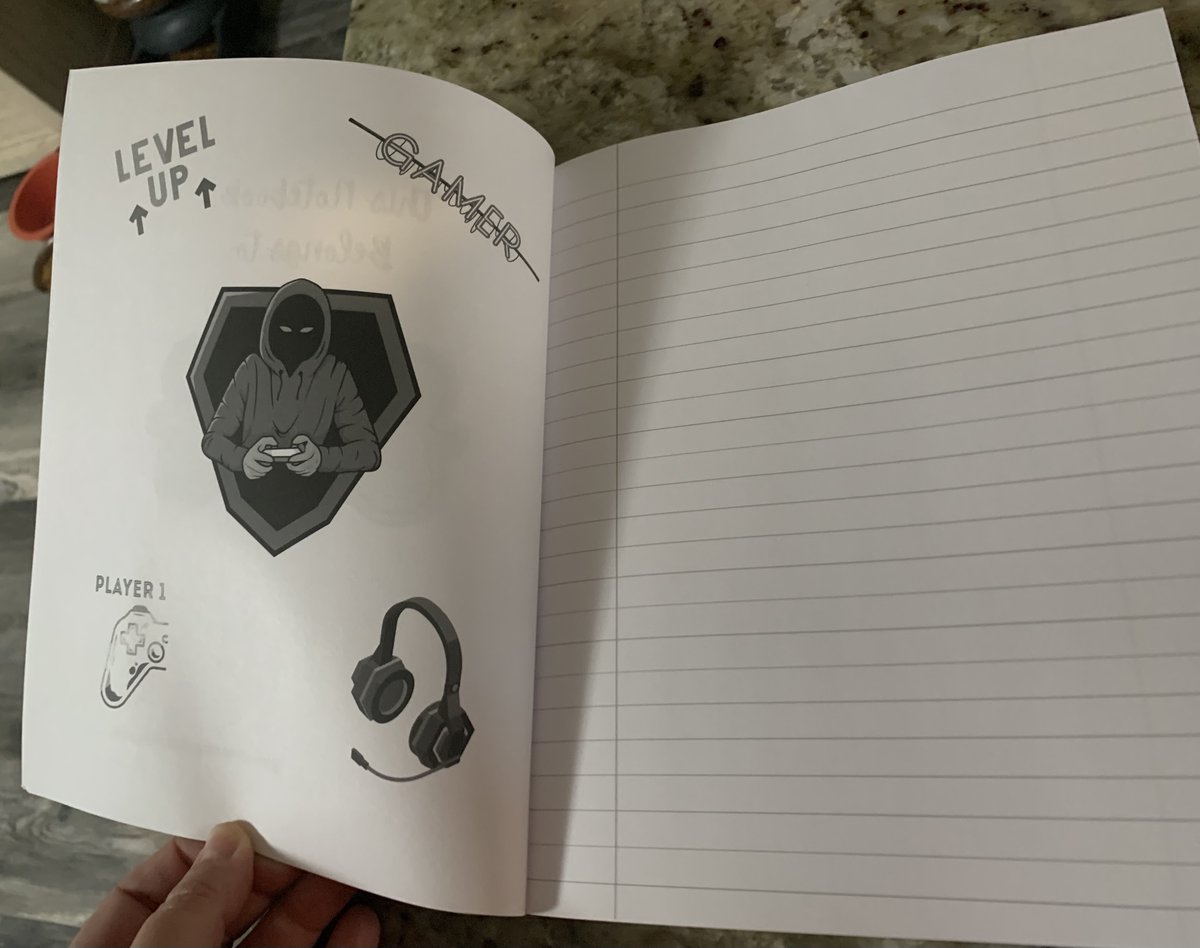 LEVEL
UP
GAMER
This Notebook
Belongs to
PLAYER 1